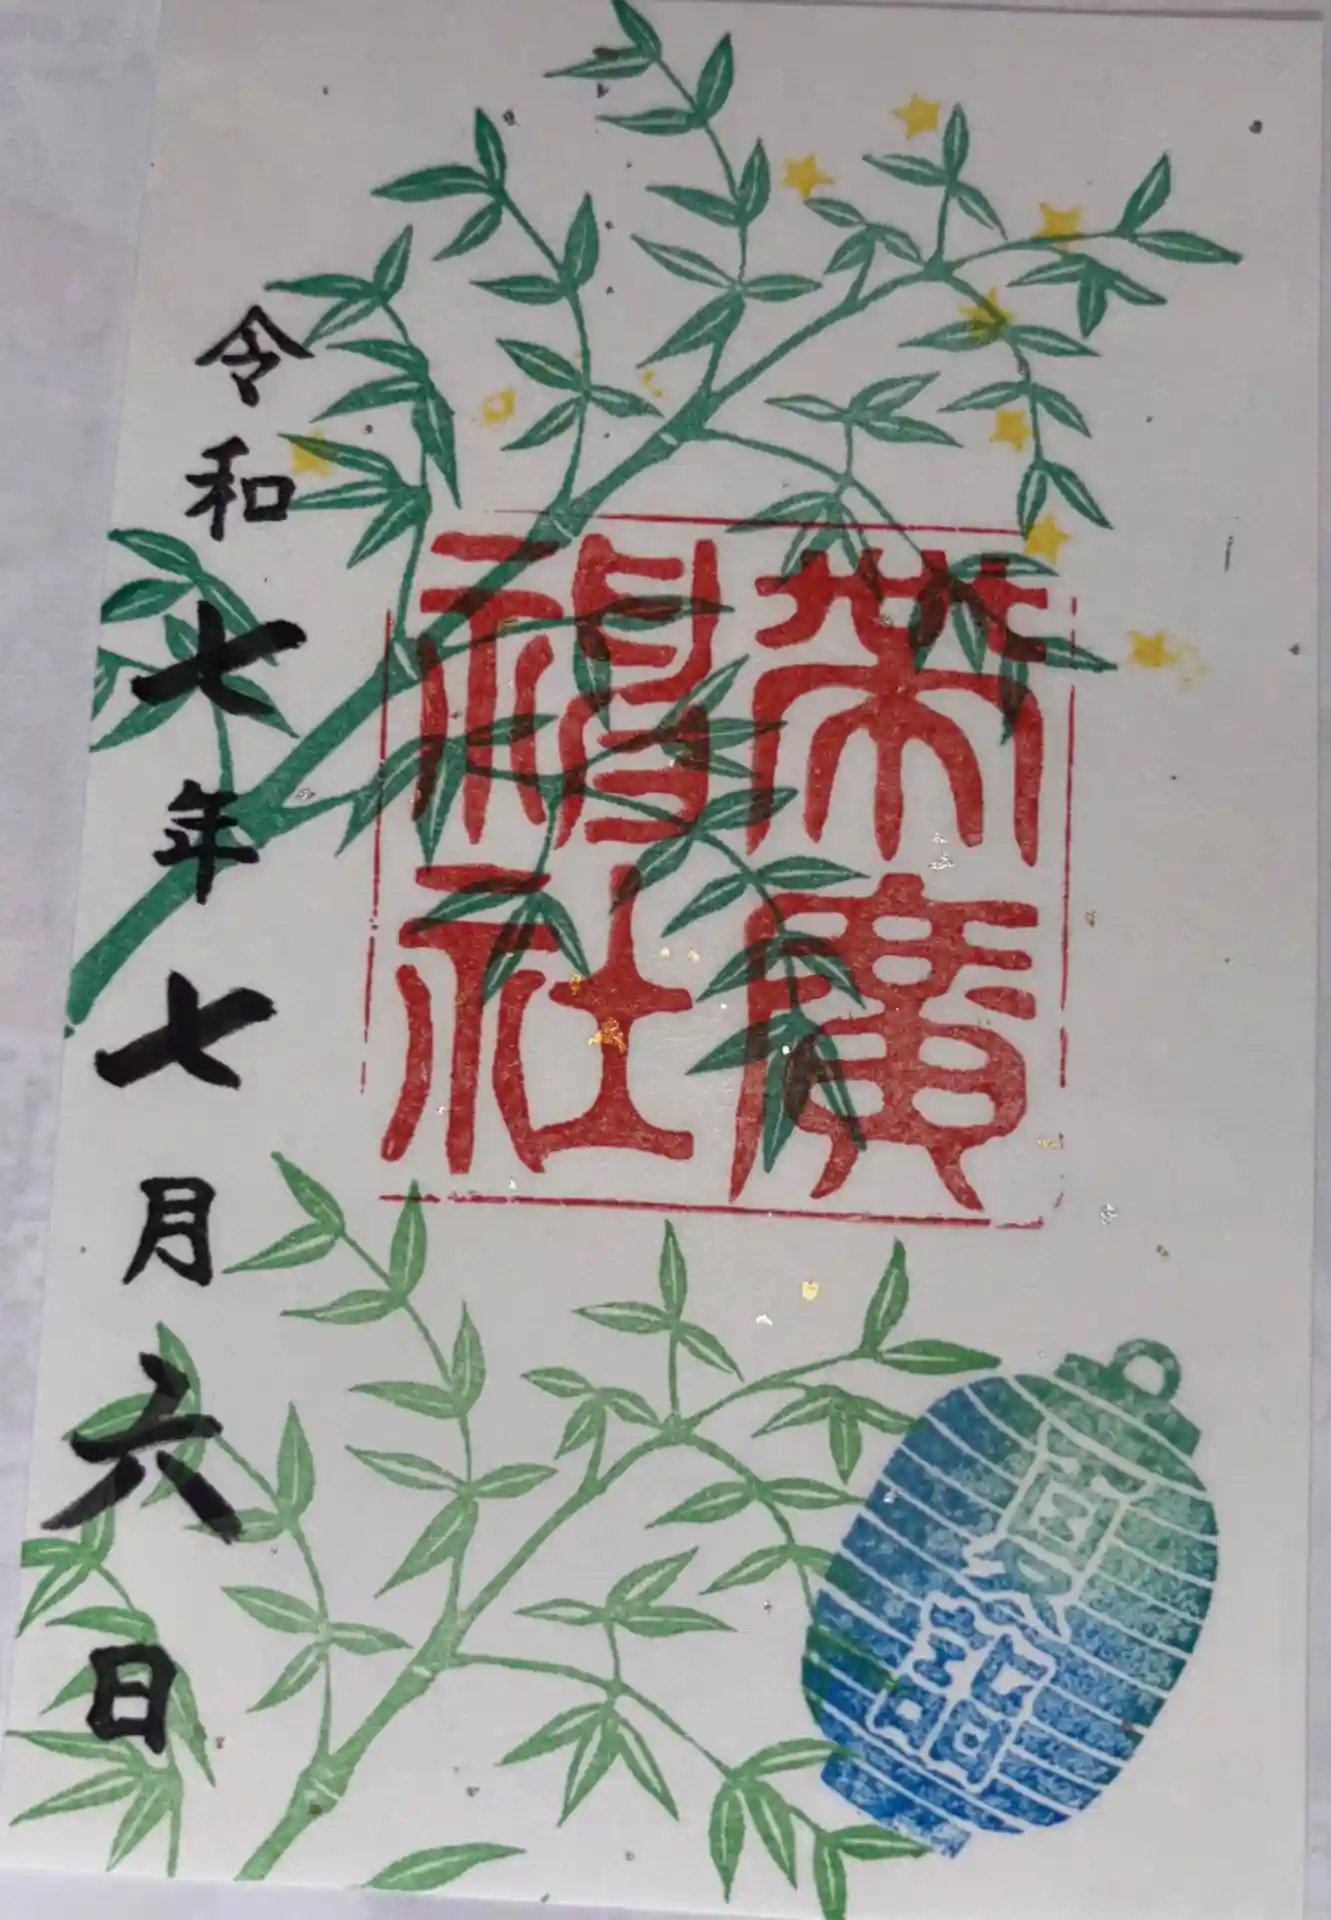 廣
社
令和七年七月六日
夏詣